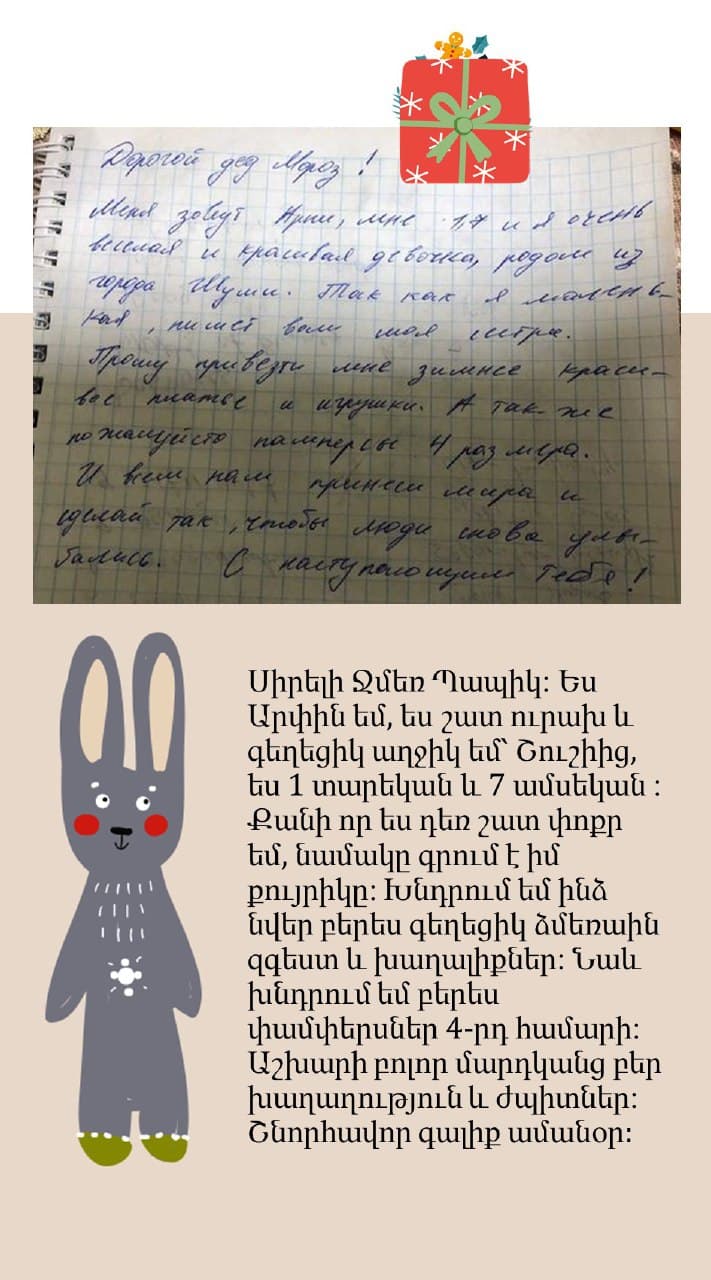 Дорогой дед Мороз!
Меня зовут Арпи, мне 1,7 и я очень
веселая и красивая девочка, родом из
города Шуши. Так как я малень-
кая, пишет вам моя сестра.
Прошу привезти мне зимнее краси-
вое платье и игрушки. А так-же
пожалуйсто памперсы 4 размера.
И всем нам принеси мира и
сделай так, чтобы люди снова улы-
бались. С наступающим тебя!
Սիրելի Ձմեռ Պապիկ: Ես
Արփին եմ, ես շատ ուրախ և
գեղեցիկ աղջիկ եմ՝ Շուշիից,
ես 1 տարեկան և 7 ամսեկան :
Քանի որ ես դեռ շատ փոքր
եմ, նամակը գրում է իմ
քույրիկը: Խնդրում եմ ինձ
նվեր բերես գեղեցիկ ձմեռաին
զգեստ և խաղալիքներ: Նաև
խնդրում եմ բերես
փամփերսներ 4-րդ համարի:
Աշխարի բոլոր մարդկանց բեր
խաղաղություն և ժպիտներ:
Շնորհավոր գալիք ամանօր: